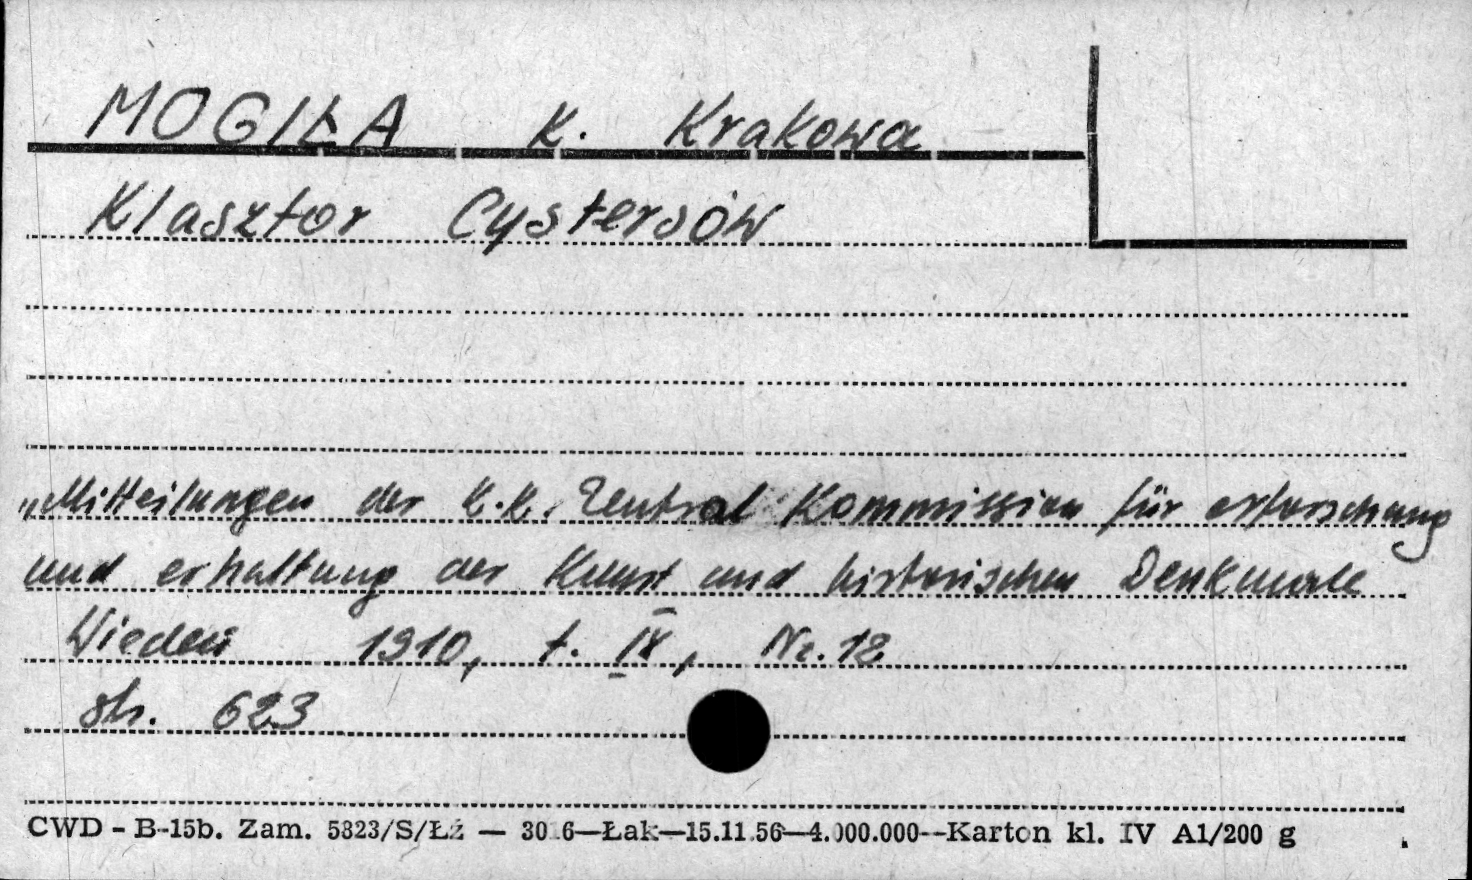 MOGIŁA K. Krakowa
Klasztor Cystersów
„Mitteilungen der k.k. Zentral Kommission für erforschung
und erhaltung der Kunst und historischen Denkmale
Wiedeń 1910, t. IX, Nr. 12
str. 623
CWD - B-15b. Zam. 5823/S/Łź — 30 6—Łak—15.11.56—4.000.000--Karton kl. IV A1/200 g